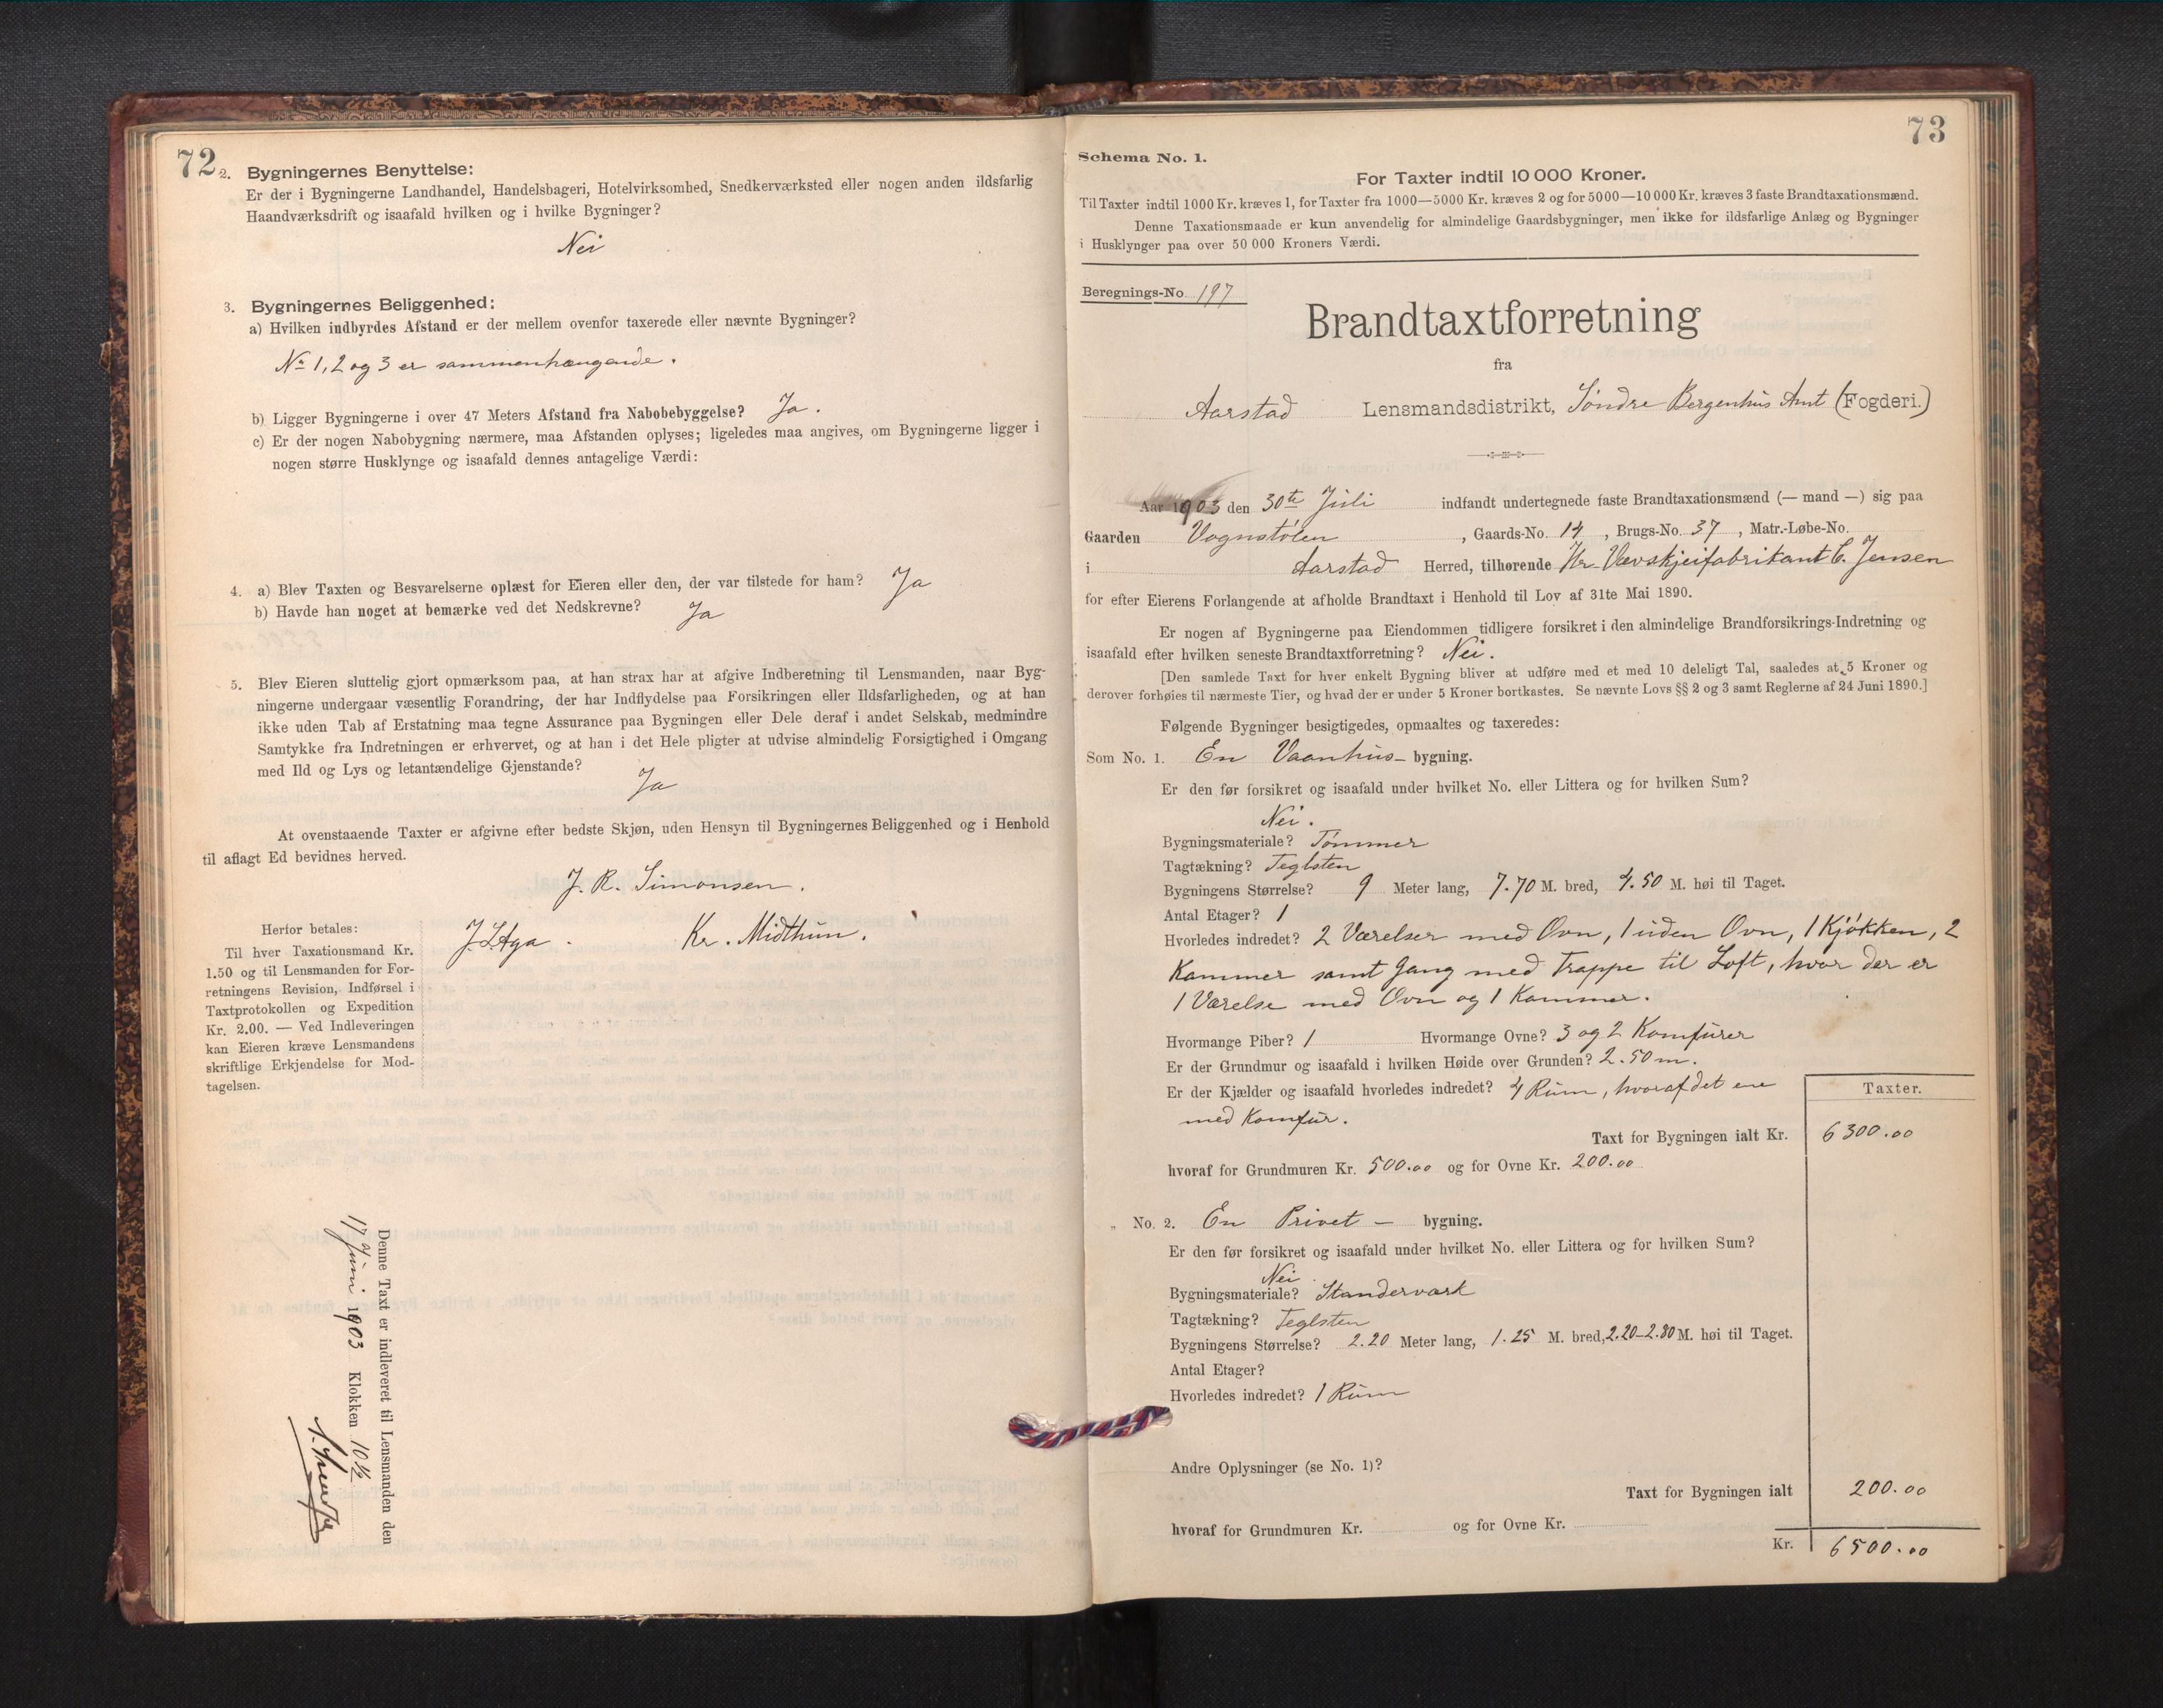 72
2. Bygningernes Benyttelse:
Er der i Bygningerne Landhandel, Handelsbageri, Hotelvirksomhed, Snedkerværksted eller nogen anden ildsfarlig
Haandværksdrift og isaafald hvilken og i hvilke Bygninger?
Nei
3. Bygningernes Beliggenhed:
a) Hvilken indbyrdes Afstand er der mellem ovenfor taxerede eller nævnte Bygninger?
No 1, 2 og 3 er sammenhængende.
b) Ligger Bygningerne i over 47 Meters Afstand fra Nabobebyggelse? Ja.
c) Er der nogen Nabobygning nærmere, maa Afstanden oplyses; ligeledes maa angives, om Bygningerne ligger i
nogen større Husklynge og isaafald dennes antagelige Værdi:
4. a) Blev Taxten og Besvarelserne oplæst for Eieren eller den, der var tilstede for ham? Ja
b) Havde han noget at bemærke ved det Nedskrevne? Ja
5. Blev Eieren sluttelig gjort opmærksom paa, at han strax har at afgive Indberetning til Lensmanden, naar Byg-
ningerne undergaar væsentlig Forandring, der har Indflydelse paa Forsikringen eller Ildsfarligheden, og at han
ikke uden Tab af Erstatning maa tegne Assurance paa Bygningen eller Dele deraf i andet Selskab, medmindre
Samtykke fra Indretningen er erhvervet, og at han i det Hele pligter at udvise almindelig Forsigtighed i Omgang
med Ild og Lys og letantændelige Gjenstande?
Ja
At ovenstaaende Taxter er afgivne efter bedste Skjøn, uden Hensyn til Bygningernes Beliggenhed og i Henhold
til aflagt Ed bevidnes herved.
J. R. Simonsen.
J. L. Aga. Kr. Midthun.
Herfor betales:
Til hver Taxationsmand Kr.
1.50 og til Lensmanden for For-
retningens Revision, Indførsel i
Taxtprotokollen og Expedition
Kr. 2.00. — Ved Indleveringen
kan Eieren kræve Lensmandens
skriftlige Erkjendelse for Mod-
tagelsen.
Denne Taxt er indleveret til Lensmanden den
17 Juni 1903 Klokken 10 ½
73
Schema No. 1.
For Taxter indtil 10 000 Kroner.
Til Taxter indtil 1000 Kr. kræves 1, for Taxter fra 1000—5000 Kr. kræves 2 og for 5000—10 000 Kr. kræves 3 faste Brandtaxationsmænd.
Denne Taxationsmaade er kun anvendelig for almindelige Gaardsbygninger, men ikke for ildsfarlige Anlæg og Bygninger
i Husklynger paa over 50 000 Kroners Værdi.
Beregnings-No. 197
Brandtaxtforretning
fra
Aarstad Lensmandsdistrikt, Søndre Bergenhus Amt (Fogderi.)
Aar 1903 den 30te Juli indfandt undertegnede faste Brandtaxationsmænd (— mand —) sig paa
Gaarden Vognstølen, Gaards-No. 14, Brugs-No. 37, Matr.-Løbe-No.
i Aarstad Herred, tilhørende Hr. Vævskjeifabrikant C. Jensen
for efter Eierens Forlangende at afholde Brandtaxt i Henhold til Lov af 31te Mai 1890.
Er nogen af Bygningerne paa Eiendommen tidligere forsikret i den almindelige Brandforsikrings-Indretning og
isaafald efter hvilken seneste Brandtaxtforretning? Nei.
[Den samlede Taxt for hver enkelt Bygning bliver at udføre med et med 10 deleligt Tal, saaledes at 5 Kroner og
derover forhøies til nærmeste Tier, og hvad der er under 5 Kroner bortkastes. Se nævnte Lovs §§ 2 og 3 samt Reglerne af 24 Juni 1890.]
Følgende Bygninger besigtigedes, opmaaltes og taxeredes:
Som No. 1. En Vaanhus- bygning.
Er den før forsikret og isaafald under hvilket No. eller Littera og for hvilken Sum?
Nei.
Bygningsmateriale? Tømmer
Tagtækning? Teglsten
Bygningens Størrelse? 9 Meter lang, 7.70 M. bred, 4.50 M. høi til Taget.
Antal Etager? 1
Hvorledes indredet? 2 Værelser med Ovn, 1 uden Ovn, 1 Kjøkken, 2
Kammer samt Gang med Trappe til Loft, hvor der er
1 Værelse med Ovn og 1 Kammer.
Hvormange Piber? 1 Hvormange Ovne? 3 og 2 Komfurer
Er der Grundmur og isaafald i hvilken Høide over Grunden? 2.50 m.
Er der Kjælder og isaafald hvorledes indredet? 4 Rum, hvoraf det ene
med Komfur.
Taxter.
Taxt for Bygningen ialt Kr. 6300.00
hvoraf for Grundmuren Kr. 500.00 og for Ovne Kr. 200.00
„ No. 2. En Privet — bygning.
Er den før forsikret og isaafald under hvilket No. eller Littera og for hvilken Sum?
Nei
Bygningsmateriale? Standerværk
Tagtækning? Teglsten
Bygningens Størrelse? 2.20 Meter lang, 1.25 M. bred, 2.20-2.80 M. høi til Taget.
Antal Etager?
Hvorledes indredet? 1 Rum
Andre Oplysninger (se No. 1)?
Taxt for Bygningen ialt 200.00
hvoraf for Grundmuren Kr. og for Ovne Kr.
Kr. 6500.00